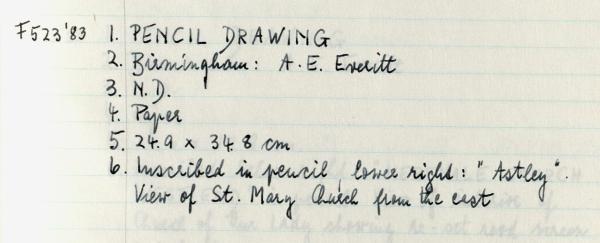 F523'83 1. PENCIL DRAWING
2. Birmingham: A. E. Everitt
3. N.D.
4. Paper
5. 24.9 x 34.8 cm
6. Inscribed in pencil, lower right: "Astley".
View of St. Mary Church from the east